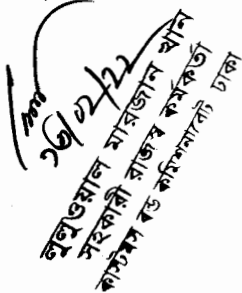 ১৬/০২/২২
লুলুওয়াল মারজান খান
সহকারী রাজস্ব কর্মকর্তা
কাস্টমস বন্ড কমিশনারেট, ঢাকা